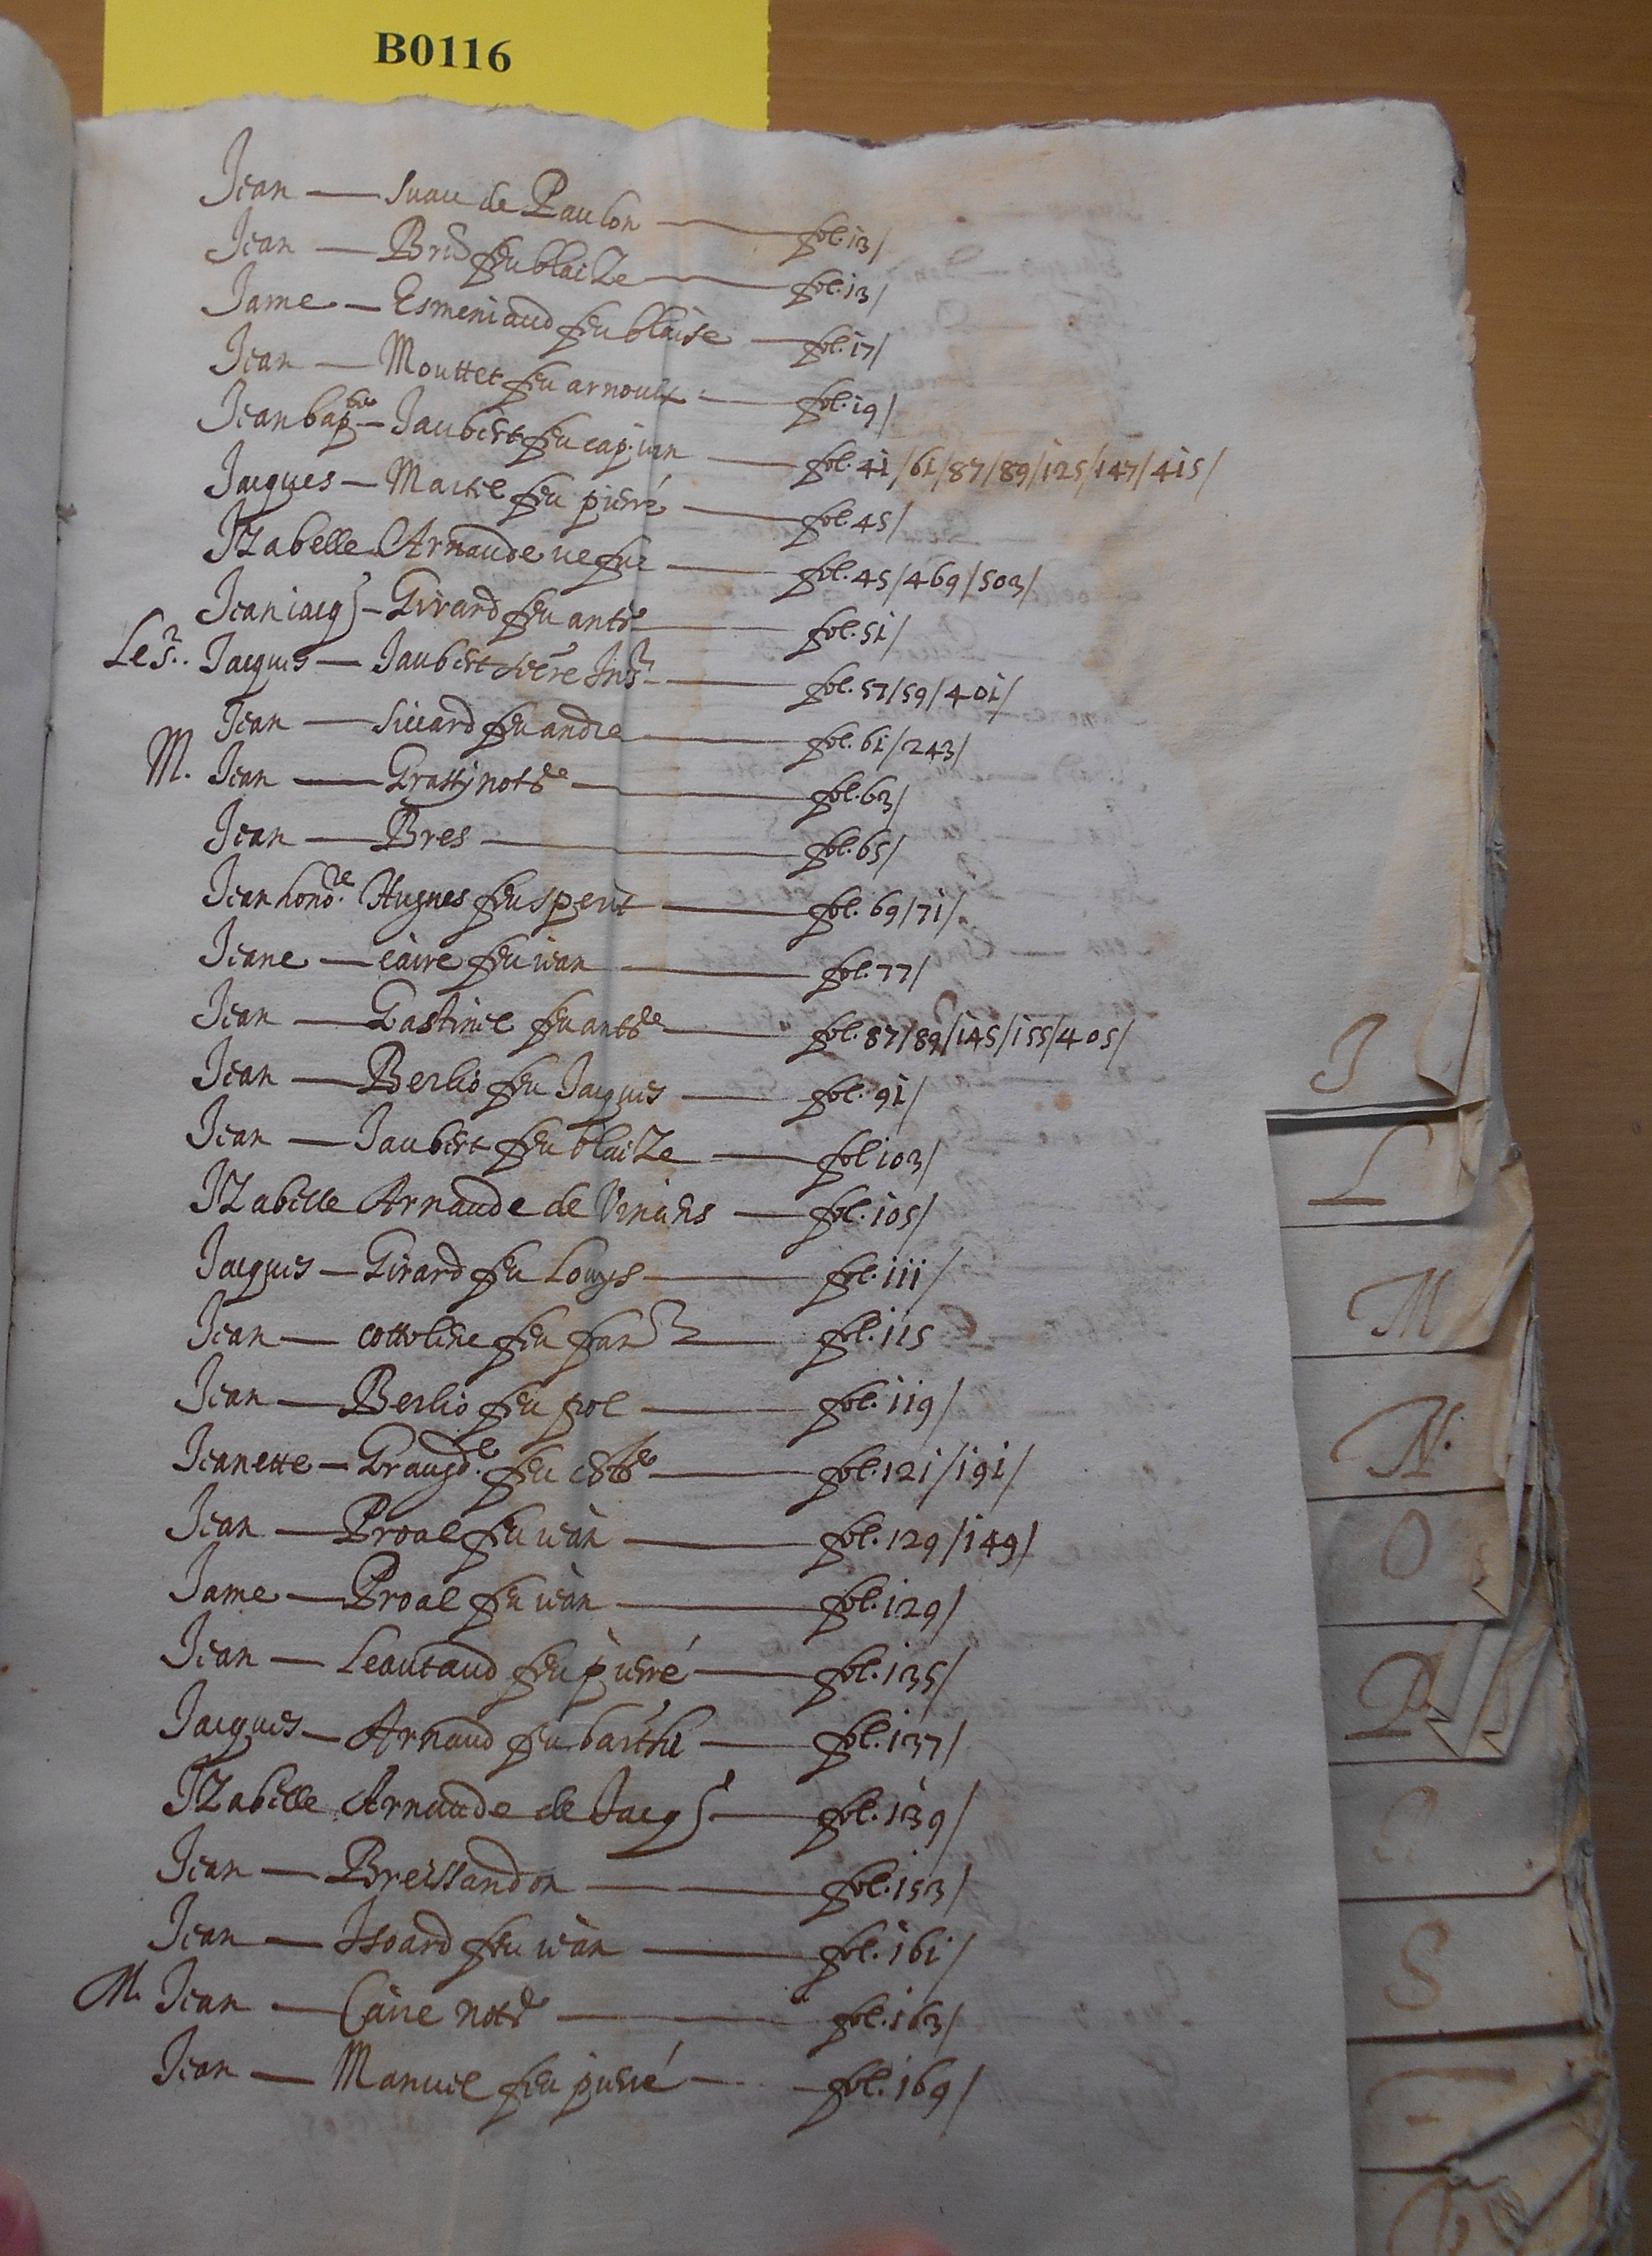 B0116
Jean — Suau de Paulon — fol. 13/
Jean — Brid feu blaize — fol. 13/
Jame — Esmeniaud feu blaise — fol. 17/
Jean — Mouttet feu arnoulx — fol. 19/
Jean bap.te — Jaubert feu cap. jean — fol. 41/61/87/89/125/147/415/
Jacques — Martel feu pierre — fol. 45/
Izabelle Arnaude vefue — fol. 45/469/503/
Jean iacq — Girard feu ant.e — fol. 51/
Le Sr. Jacques — Jaubert — fol. 57/59/401/
Jean — Siccard feu andre — fol. 61/243/
M. Jean — Grassy not.re — fol. 63/
Jean — Bres — fol. 65/
Jean hono.re Hugues feu sperit — fol. 69/71/
Jeane — caire feu iean — fol. 77/
Jean — Gastinel feu ant.e — fol. 87/89/145/155/405/
Jean — Berlio feu Jacques — fol. 91/
Jean — Jaubert feu blaize — fol 103/
Izabelle Arnaude de Vinans — fol. 105/
Jacques — Girard feu Louys — fol. 111/
Jean — cottolene feu fran — fol. 115
Jean — Berlio feu pol — fol. 119/
Jeanette — Graugd.e feu — fol. 121/191/
Jean — Proal feu iean — fol. 129/149/
Jame — Proal feu iean — fol. 129/
Jean — Leautaud feu pierre — fol. 135/
Jacques — Arnaud feu barthe — fol. 137/
Izabelle Arnaude de Jacq — fol. 139/
Jean — Breissandon — fol. 153/
Jean — Isoard feu iean — fol. 161/
M. Jean — Caire not.re — fol. 163/
Jean — Manuel feu pierre — fol. 169/
J
L
M
N.
O
P
S